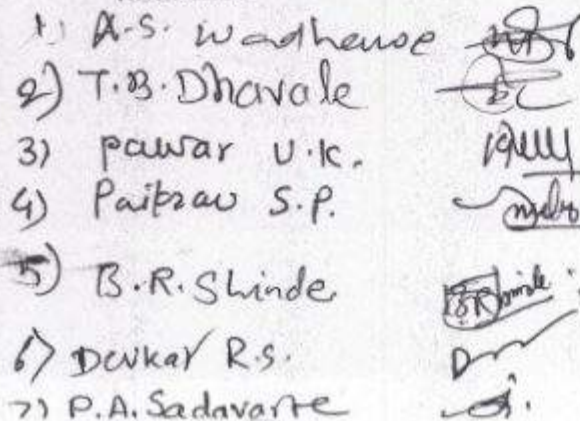 1) A.S. Wadhawse
2) T.B. Dhavale
3) Pawar U.K.
4) Paikrav S.P.
5) B.R. Shinde
6) Devkar R.S.
7) P.A. Sadavarte